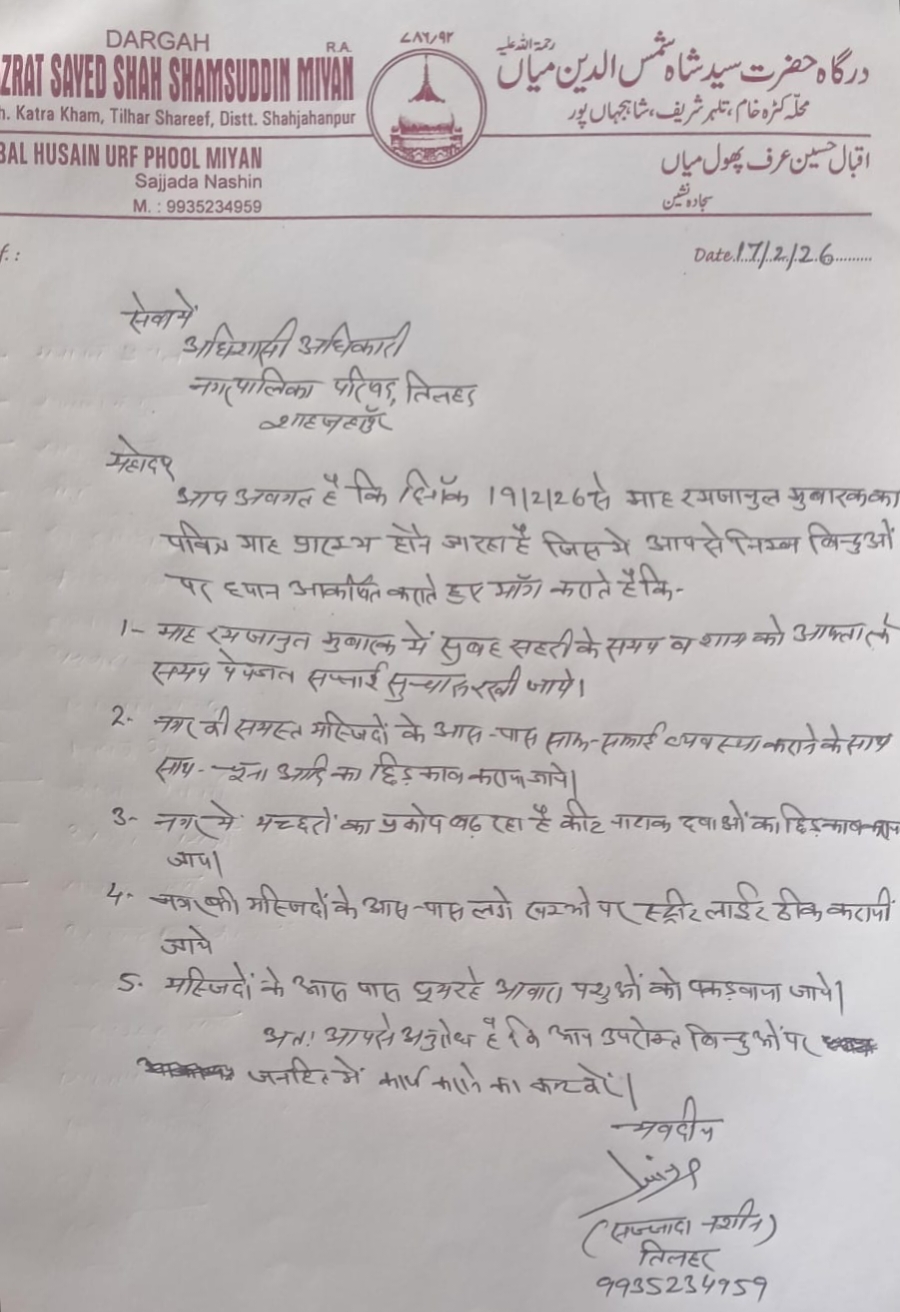 DARGAH
ZRAT SAYED SHAH SHAMSUDDIN MIYAN R.A.
h. Katra Kham, Tilhar Shareef, Distt. Shahjahanpur
BAL HUSAIN URF PHOOL MIYAN
Sajjada Nashin
M. : 9935234959
۷۸۶/۹۲
درگاہ حضرت سید شاہ شمس الدین میاں رحمۃ اللہ علیہ
محلہ کٹرہ خام، تلہر شریف، شاہجہاں پور
اقبال حسین عرف پھول میاں
سجادہ نشین
f. :
Date.17/2/26
सेवा में
अधिशासी अधिकारी
नगरपालिका परिषद, तिलहर
शाहजहाँपुर
महोदय
आप अवगत है कि दिनाँक 19/2/26 से माह रमजानुल मुबारक का
पवित्र माह प्रारम्भ होने जा रहा है जिसमे आपसे निम्न बिन्दुओं
पर ध्यान आकर्षित कराते हुए माँग करते है कि-
1- माह रमजानुल मुबारक में सुबह सहरी के समय व शाम को अफतार के
समय पेयजल सप्लाई सुचारू रखी जाये।
2- नगर की समस्त मस्जिदों के आस-पास साफ-सफाई व्यवस्था कराने के साथ
साथ- चूना आदि का छिड़काव कराया जाये।
3- नगर मे मच्छरों का प्रकोप बढ़ रहा है कीट नाशक दवाओं का छिड़काव कराया
जाय।
4- नगर की मस्जिदों के आस-पास लगे खम्भो पर स्ट्रीट लाईट ठीक करायी
जाये
5- मस्जिदों के आस पास घूम रहे आवारा पशुओं को पकड़वाया जाये।
अतः आपसे अनुरोध है कि आप उपरोक्त बिन्दुओं पर
जनहित में कार्य कराने का कष्ट करें।
भवदीय
(सज्जादा नशीन)
तिलहर
9935234959